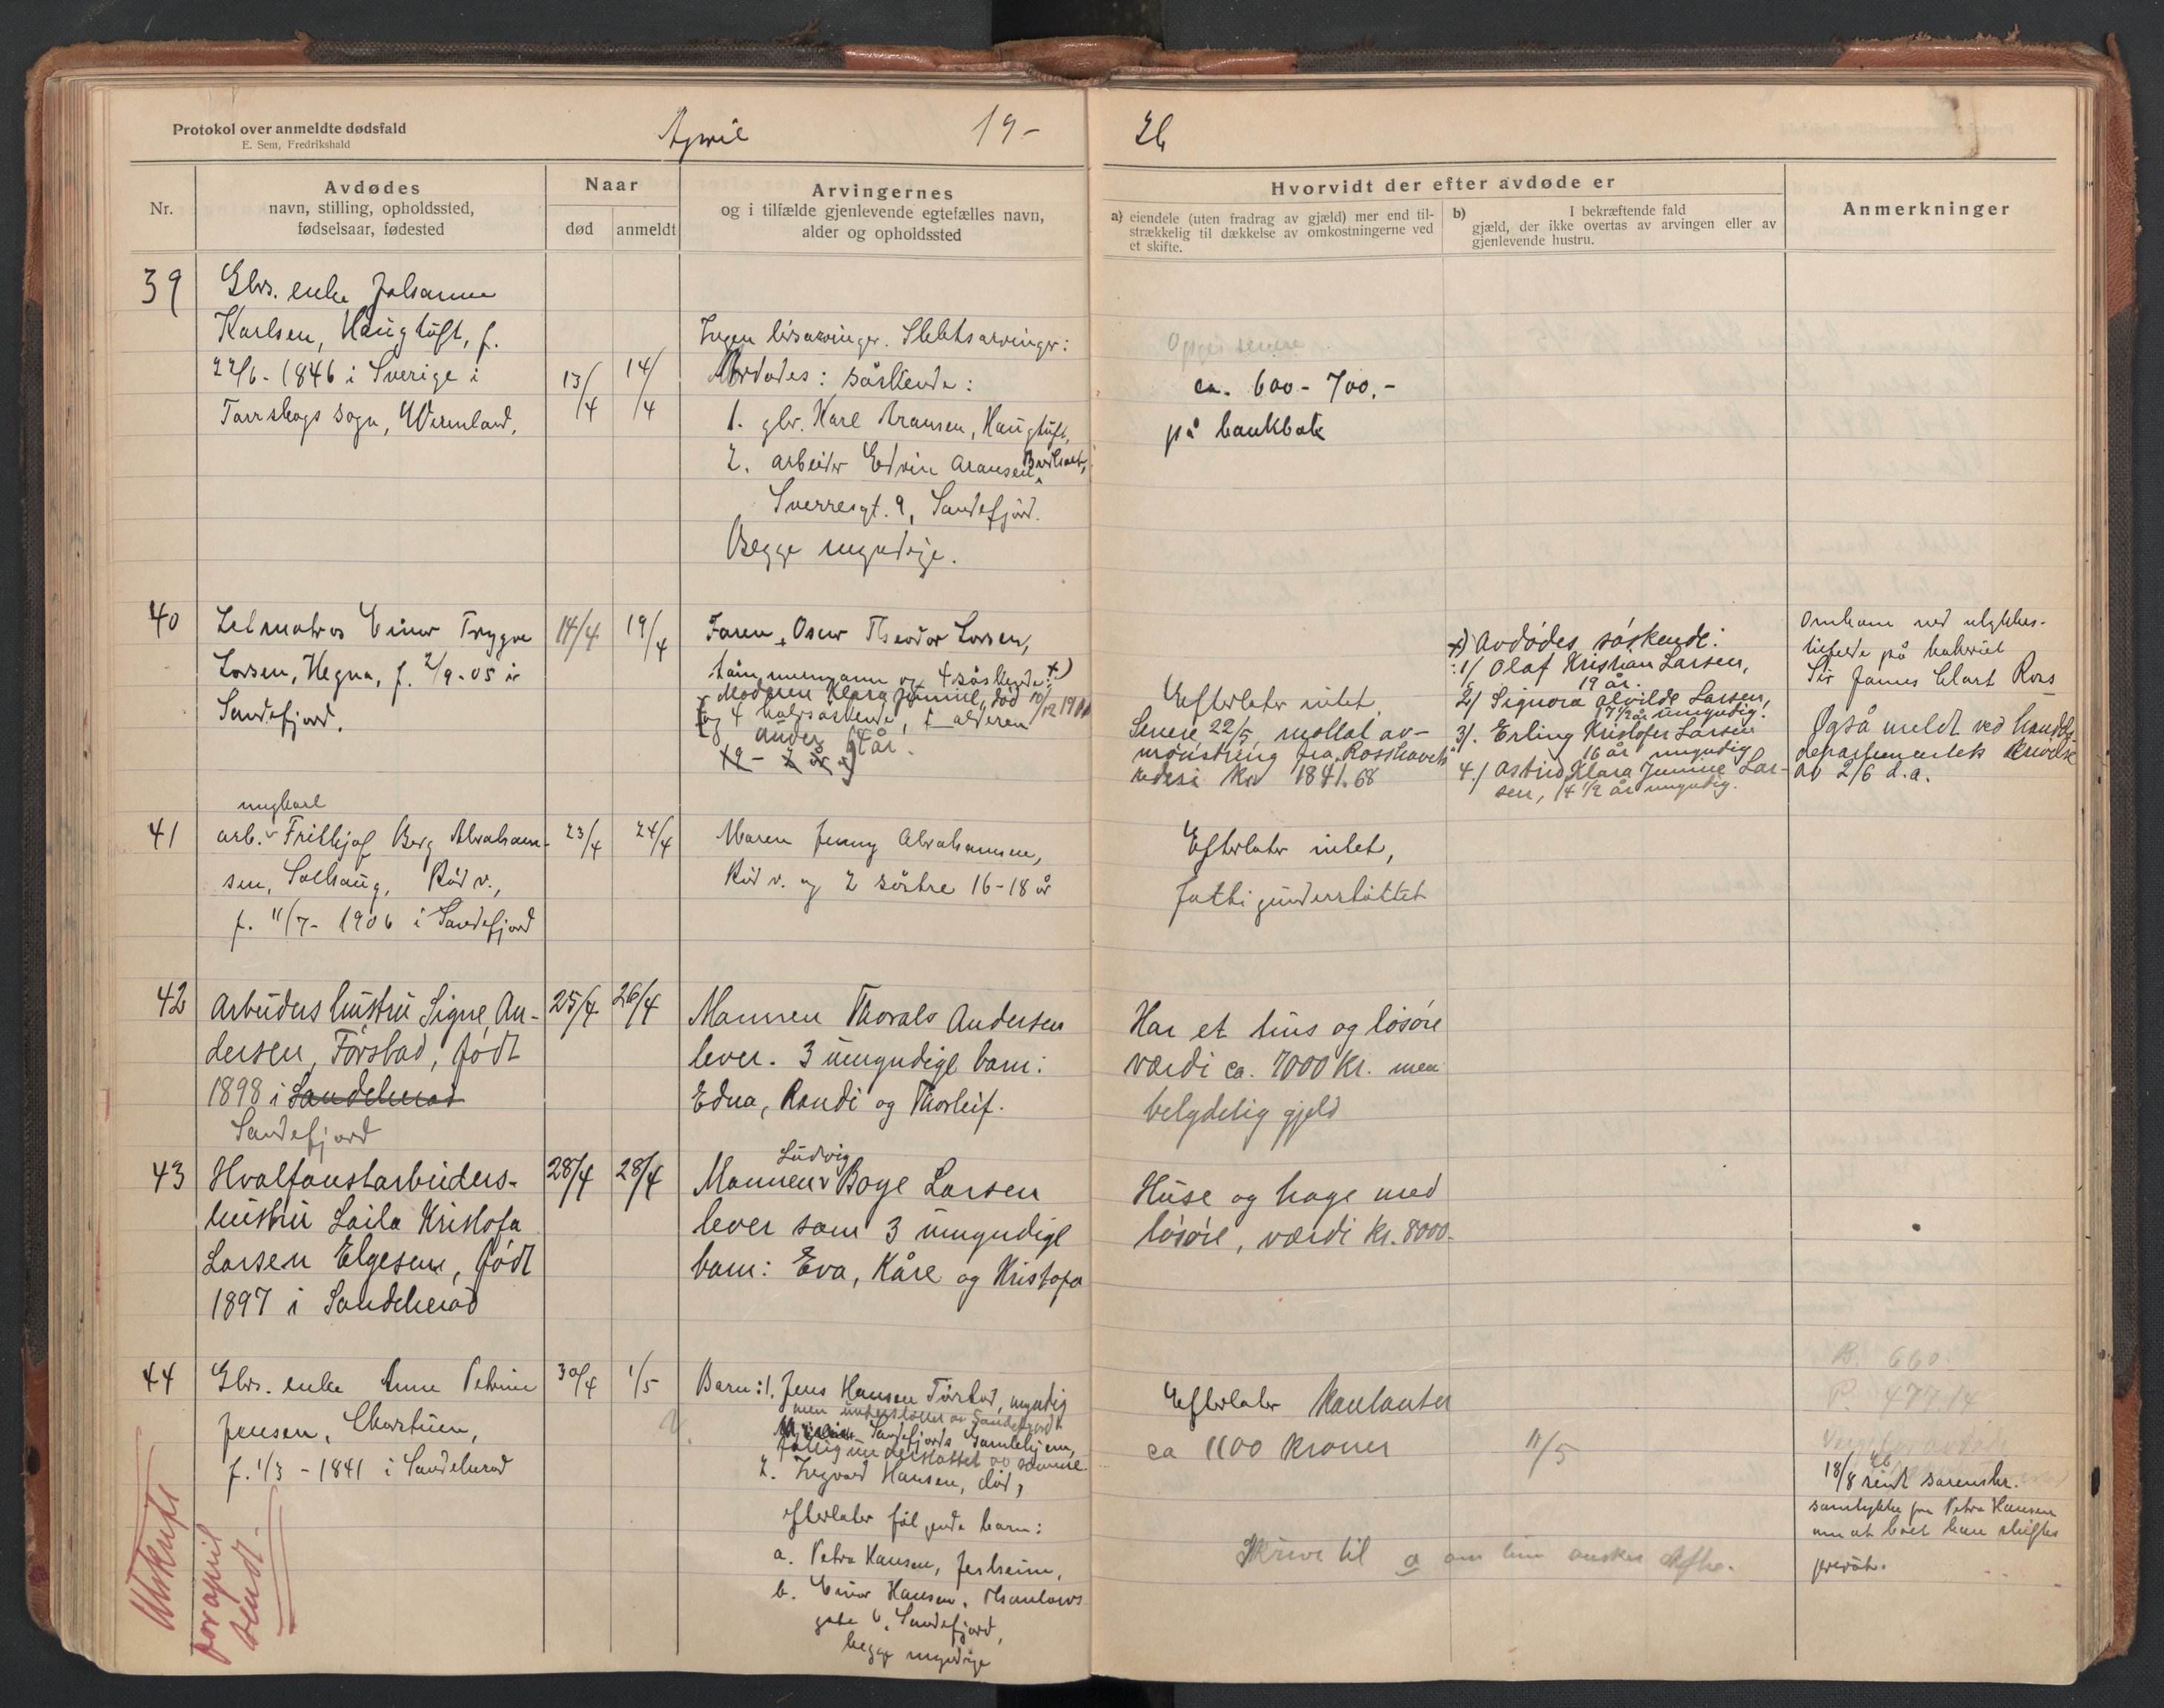 Protokol over anmeldte dødsfald
E. Sem, Fredrikshald
April 19-
26
Nr.
Avdødes
navn, stilling, opholdssted,
fødselsaar, fødested
Naar
død
anmeldt
Arvingernes
og i tilfælde gjenlevende egtefælles navn,
alder og opholdssted
Hvorvidt der efter avdøde er
a) eiendele (uten fradrag av gjæld) mer end til-
strækkelig til dækkelse av omkostningerne ved
et skifte.
b) I bekræftende fald
gjæld, der ikke overtas av arvingen eller av
gjenlevende hustru.
Anmerkninger
39
Gbr. enke Johanne
Karlsen, Haugtuft, f.
22/6- 1846 i Sverige i
sogn, Wermland,
13/4
14/4
Ingen livsarvinger. Slektsarvinger:
Avdødes: søskende:
1. gbr. Karl Aransen, Haugtuft,
2. arbeider Edvin Aransen,
Sverresgt. 9, Sandefjord.
Begge myndige.
Opgis senere
ca. 600- 700.-
på bankbok
40
Letmatros Einar Trygve
Larsen, Hegna, f. 2/9-05 i
Sandefjord.
14/4
19/4
Faren, Oscar Theodor Larsen,
tømmermann og 4 søskende +)
Moderen Klara Jamine, død 10/12 1911
og 4 halvsøskende, i alderen
under 14 år.
12 - 2 år
Efterlater intet,
Senere 22/5 mottat av-
mønstring fra Rosshavets
rederi Kr 1841.68
+) Avdødes søskende:
1/ Olaf Kristian Larsen,
19 år.
2/ Signora Alvilde Larsen,
17 1/2 år umyndig.
3/. Erling Kristofer Larsen
16 år umyndig
4./ Astrid Klara Jamine Lar-
sen, 14 1/2 år umyndig.
Omkom ved ulykkes-
tilfelde på hvalkok
Sir James Clark Ross
Også meldt ved handels-
departementets skrivelse
av 2/6 d.a.
41
ungkarl
arb. Frithjof Berg Abraham-
sen, Solhaug, Rød v.,
f. 11/7- 1906 i Sandefjord
23/4
24/4
Maren Jenny Abrahamsen,
Rød v. og 2 søstre 16-18 år
Efterlater intet,
fattigunderstøttet
42
Arbeiders hustru Signe An-
dersen, Førstad, født
1898 i Sandeherad
Sandefjord
25/4.
26/4
Mannen Thorals Andersen
lever. 3 umyndige barn:
Edna, Randi og Thorleif.
Har et hus og løsøre
værdi ca. 7000 kr. men
betydelig gjeld
43
Hvalfangstarbeiders-
hustru Laila Kristofa
Larsen Elgesem, født
1897 i Sandeherad
28/4
28/4
Ludvig
Mannen Boye Larsen
lever som 3 umyndige
barn: Eva, Kåre og Kristofa
Huse og hage med
løsøre, værdi kr. 8000.
44
Gbr. enke Anne Petrine
Jensen,
f. 1/3 - 1841 i Sandeherad
30/4
1/5
Barn: 1. Jens Hansen Førstad, myndig
men understøttet av Sandefjord
Sandefjords Gamlehjem,
fattigunderstøttet av samme.
2. Ingvard Hansen, død,
efterlater følgende barn:
a. Petra Hansen, Jerheim,
b. Einar Hansen, Thaulows
gate 6, Sandefjord,
begge myndige
Efterlater kontanter
ca 1100 kroner
11/5
Skrive til a om hun ønsker skifte.
B. 660.
P. 477.14
18/8 26 sendt sorenskr.
samtykke fra Petra Hansen
om at boet kan skiftes
privat.
Utskrift
for april
sendt.